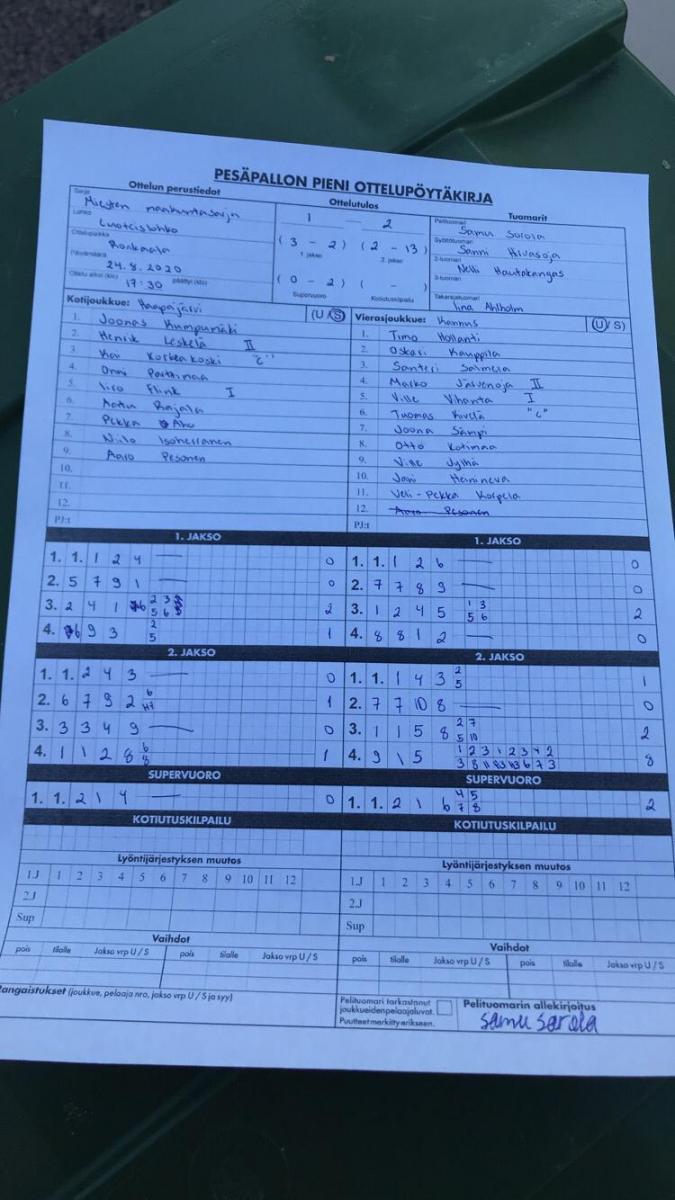 PESÄPALLON PIENI OTTELUPÖYTÄKIRJA
Ottelun perustiedot Ottelutulos Tuomarit
Sarja Miesten maakuntasarja
Lohko Luoteislohko
Ottelupaikka Ronkaala
Päivämäärä 24.8.2020
Ottelu alkoi (klo) 17:30 päättyi (klo)
1 — 2
(3 - 2) (2 - 13)
1. jakso 2. jakso
(0 - 2) ( - )
Supervuoro Kotiutuskilpailu
Pelituomari Samu Sorola
Syöttötuomari Sanni Hirvasoja
2-tuomari Nelli Hautakangas
3-tuomari
Takarajatuomari Iina Ahlholm
Kotijoukkue: Haapajärvi (U/S)
1. Joonas Kumpumäki
2. Henrik Leskelä II
3. Kai Korteakoski "C"
4. Onni Parttimaa
5. Iiro Flink I
6. Aatu Rajala
7. Pekka Aho
8. Niilo Isoherranen
9. Aaro Pesonen
10.
11.
12.
PJ:t
Vierasjoukkue: Kannus (U/S)
1. Timo Hollanti
2. Oskari Kauppila
3. Santeri Salmela
4. Marko Järvenoja II
5. Ville Vihanta I
6. Tuomas Kivelä "C"
7. Joona Sämpi
8. Otto Kotimaa
9. Ville Jylhä
10. Jani Heinineva
11. Veli-Pekka Korpela
12. Aaro Pesonen
PJ:t
1. JAKSO
1. 1. 1 2 4 — 0
2. 5 7 9 1 — 0
3. 2 4 1 6 2 3 5 6 2
4. 6 9 3 2 5 1
1. JAKSO
1. 1. 1 2 6 — 0
2. 7 7 8 9 — 0
3. 1 2 4 5 1 3 5 6 2
4. 8 8 1 2 — 0
2. JAKSO
1. 1. 2 4 3 — 0
2. 6 7 9 2 6 1
3. 3 3 4 9 — 0
4. 1 1 2 8 6 8 1
2. JAKSO
1. 1. 1 4 3 2 5 1
2. 7 7 10 8 — 0
3. 1 1 5 8 2 7 5 10 2
4. 9 1 5 1 2 3 1 2 3 8
SUPERVUORO
1. 1. 2 1 4 — 0
SUPERVUORO
1. 1. 2 1 6 4 5 7 8 2
KOTIUTUSKILPAILU
KOTIUTUSKILPAILU
Lyöntijärjestyksen muutos
1.J 1 2 3 4 5 6 7 8 9 10 11 12
2.J
Sup
Lyöntijärjestyksen muutos
1.J 1 2 3 4 5 6 7 8 9 10 11 12
2.J
Sup
Vaihdot
pois tilalle Jakso vrp U / S pois tilalle Jakso vrp U / S
Vaihdot
pois tilalle Jakso vrp U / S pois tilalle Jakso vrp U / S
Rangaistukset (joukkue, pelaaja nro, jakso vrp U / S ja syy)
Pelituomari tarkastanut
joukkueiden pelaajaluvat.
Puutteet merkitty erikseen.
Pelituomarin allekirjoitus
Samu Sorola